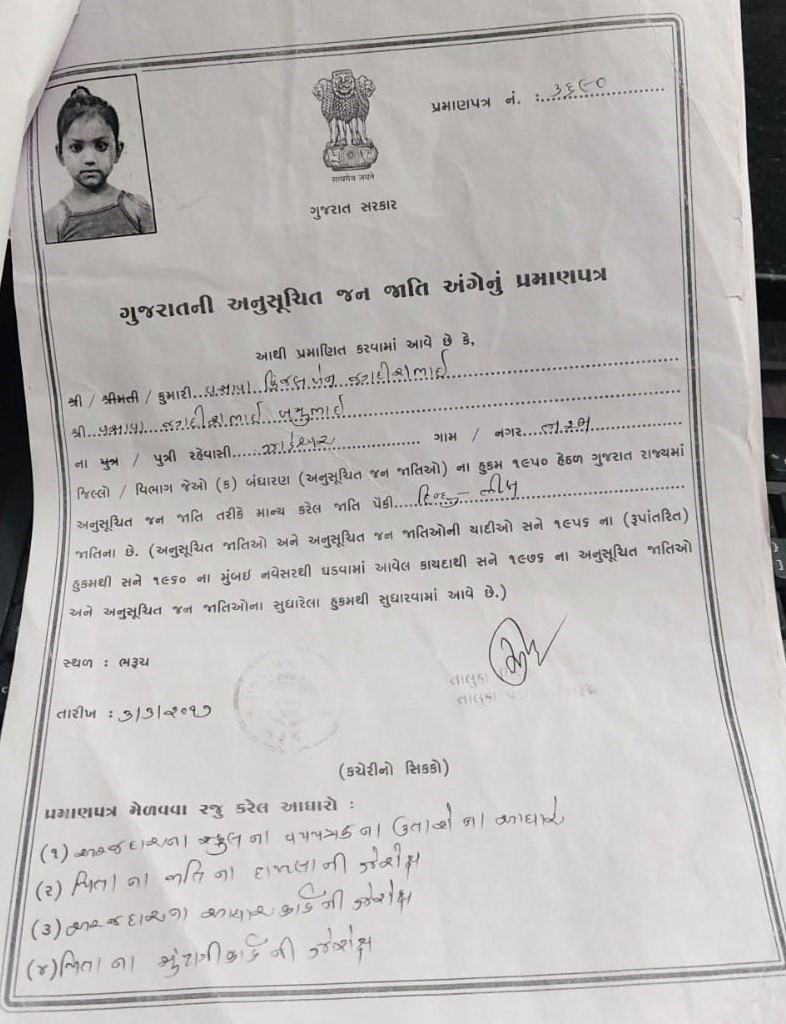 પ્રમાણપત્ર નં. : ૩૬૯૦
सत्यमेव जयते
ગુજરાત સરકાર
ગુજરાતની અનુસૂચિત જન જાતિ અંગેનું પ્રમાણપત્ર
આથી પ્રમાણિત કરવામાં આવે છે કે,
શ્રી / શ્રીમતી / કુમારી વસાવા કિંજલબેન જગદીશભાઈ
શ્રી વસાવા જગદીશભાઈ બચુભાઈ
ના પુત્ર / પુત્રી રહેવાસી ઝાડેશ્વર ગામ / નગર ભરૂચ
જિલ્લો / વિભાગ જેઓ (ક) બંધારણ (અનુસૂચિત જન જાતિઓ) ના હુકમ ૧૯૫૦ હેઠળ ગુજરાત રાજ્યમાં
અનુસૂચિત જન જાતિ તરીકે માન્ય કરેલ જાતિ પૈકી હિન્દુ - ભીલ
જાતિના છે. (અનુસૂચિત જાતિઓ અને અનુસૂચિત જન જાતિઓની યાદીઓ સને ૧૯૫૬ ના (રૂપાંતરિત)
હુકમથી સને ૧૯૬૦ ના મુંબઈ નવેસરથી ઘડવામાં આવેલ કાયદાથી સને ૧૯૭૬ ના અનુસૂચિત જાતિઓ
અને અનુસૂચિત જન જાતિઓના સુધારેલા હુકમથી સુધારવામાં આવે છે.)
સ્થળ : ભરૂચ
તાલુકા
તાલુકા
તારીખ : ૩/૩/૨૦૧૭
(કચેરીનો સિક્કો)
પ્રમાણપત્ર મેળવવા રજુ કરેલ આધારો :
(૧) અરજદારના સ્કુલ ના વયપત્રક ના ઉતારો ના આધારે
(૨) પિતા ના જાતિ ના દાખલા ની ઝેરોક્ષ
(૩) અરજદારના આધાર કાર્ડ ની ઝેરોક્ષ
(૪) પિતા ના ચુંટણીકાર્ડ ની ઝેરોક્ષ